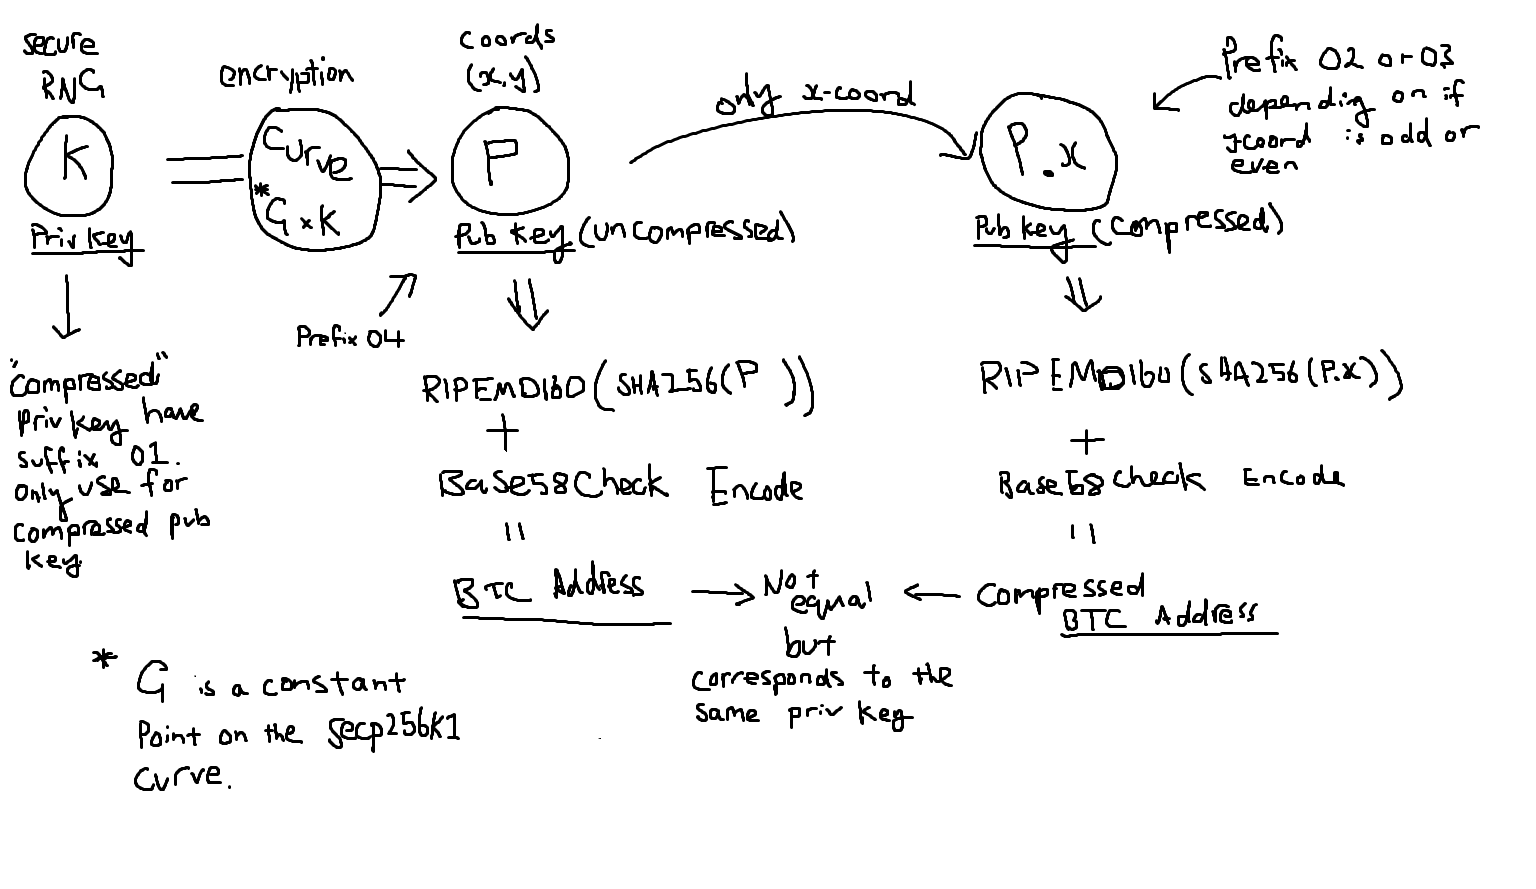 secure
RNG
K
Priv key
"compressed"
Priv key have
suffix 01.
Only use for
compressed pub
key
encryption
Curve
* G x K
Prefix 04
coords
(x,y)
P
Pub key (uncompressed)
RIPEMD160(SHA256(P))
+
Base58Check Encode
=
BTC Address
only x-coord
P.x
Pub key (compressed)
Prefix 02 or 03
depending on if
y-coord is odd or
even
RIPEMD160(SHA256(P.x))
+
Base58check Encode
=
Compressed
BTC Address
Not
equal
but
corresponds to the
same priv key
* G is a constant
Point on the secp256k1
curve.